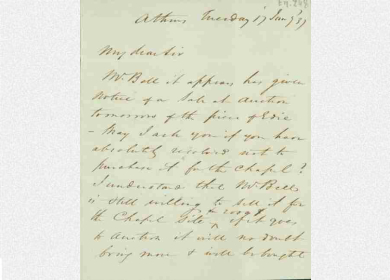 Athens Tuesday 17 Jany
My dear Sir
Mr Bell it appears has given
Notice of a Sale at Auction
tomorrow of the piece of
– May I ask you if you have
absolutely resolved not to
purchase it for the Chapel?
I understand that Mr Bell
is still willing to sell it for
the Chapel Site if it goes
to Auction it will no doubt
bring more & will be bought